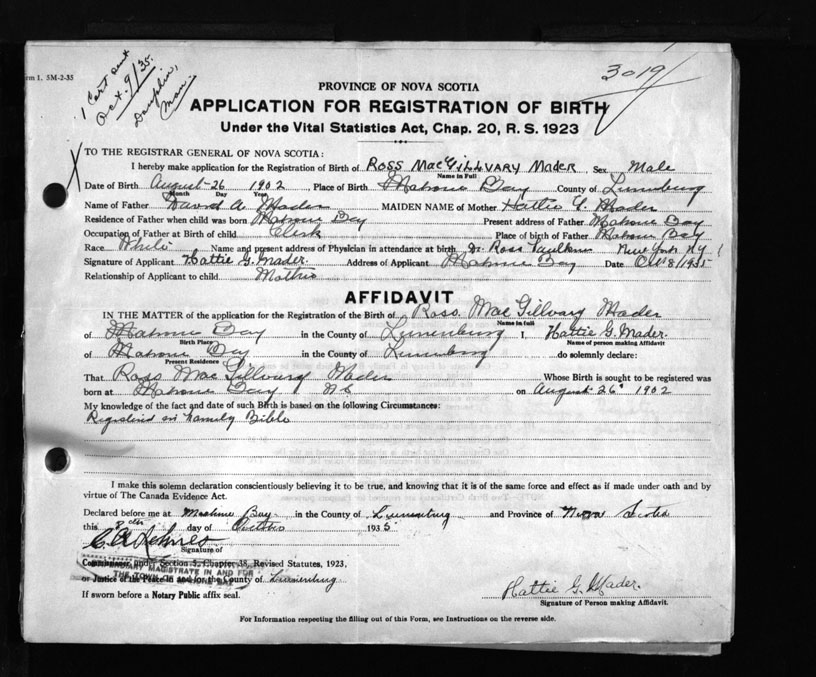 rm 1. 5M-2-35
1 Cert sent
Oct. 9/35.
Dauphin,
Man.
3019
PROVINCE OF NOVA SCOTIA
APPLICATION FOR REGISTRATION OF BIRTH
Under the Vital Statistics Act, Chap. 20, R. S. 1923
X TO THE REGISTRAR GENERAL OF NOVA SCOTIA:
I hereby make application for the Registration of Birth of Ross MacGillvary Mader, Sex Male
Name in Full
Date of Birth August 26 1902 Place of Birth Mahone Bay County of Lunenburg
Month Day Year
Name of Father David A. Mader MAIDEN NAME of Mother Hattie G. Mader
Residence of Father when child was born Mahone Bay Present address of Father Mahone Bay
Occupation of Father at Birth of Child Clerk Place of birth of Father Mahone Bay
Race White Name and present address of Physician in attendance at birth Dr. Ross Faulkner New York N.Y.
Signature of Applicant Hattie G. Mader. Address of Applicant Mahone Bay Date Oct 8/1935
Relationship of Applicant to child Mother
AFFIDAVIT
IN THE MATTER of the application for the Registration of the Birth of Ross. MacGillvary Mader
Name in full
of Mahone Bay in the County of Lunenburg I, Hattie G. Mader.
Birth Place Name of person making Affidavit
of Mahone Bay in the County of Lunenburg do solemnly declare:
Present Residence
That Ross MacGillvary Mader Whose Birth is sought to be registered was
born at Mahone Bay N.S on August 26 1902
My knowledge of the fact and date of such Birth is based on the following Circumstances:
Registered in Family Bible
I make this solemn declaration conscientiously believing it to be true, and knowing that it is of the same force and effect as if made under oath and by
virtue of The Canada Evidence Act.
Declared before me at Mahone Bay in the County of Lunenburg and Province of Nova Scotia
this 8th day of October 1935
Signature of
Commissioner under Section 3, Chapter 38, Revised Statutes, 1923,
STIPENDIARY MAGISTRATE IN AND FOR
THE TOWN OF
or Justice of the Peace in and for the County of Lunenburg
If sworn before a Notary Public affix seal.
Hattie G. Mader.
Signature of Person making Affidavit.
For Information respecting the filling out of this Form, see Instructions on the reverse side.